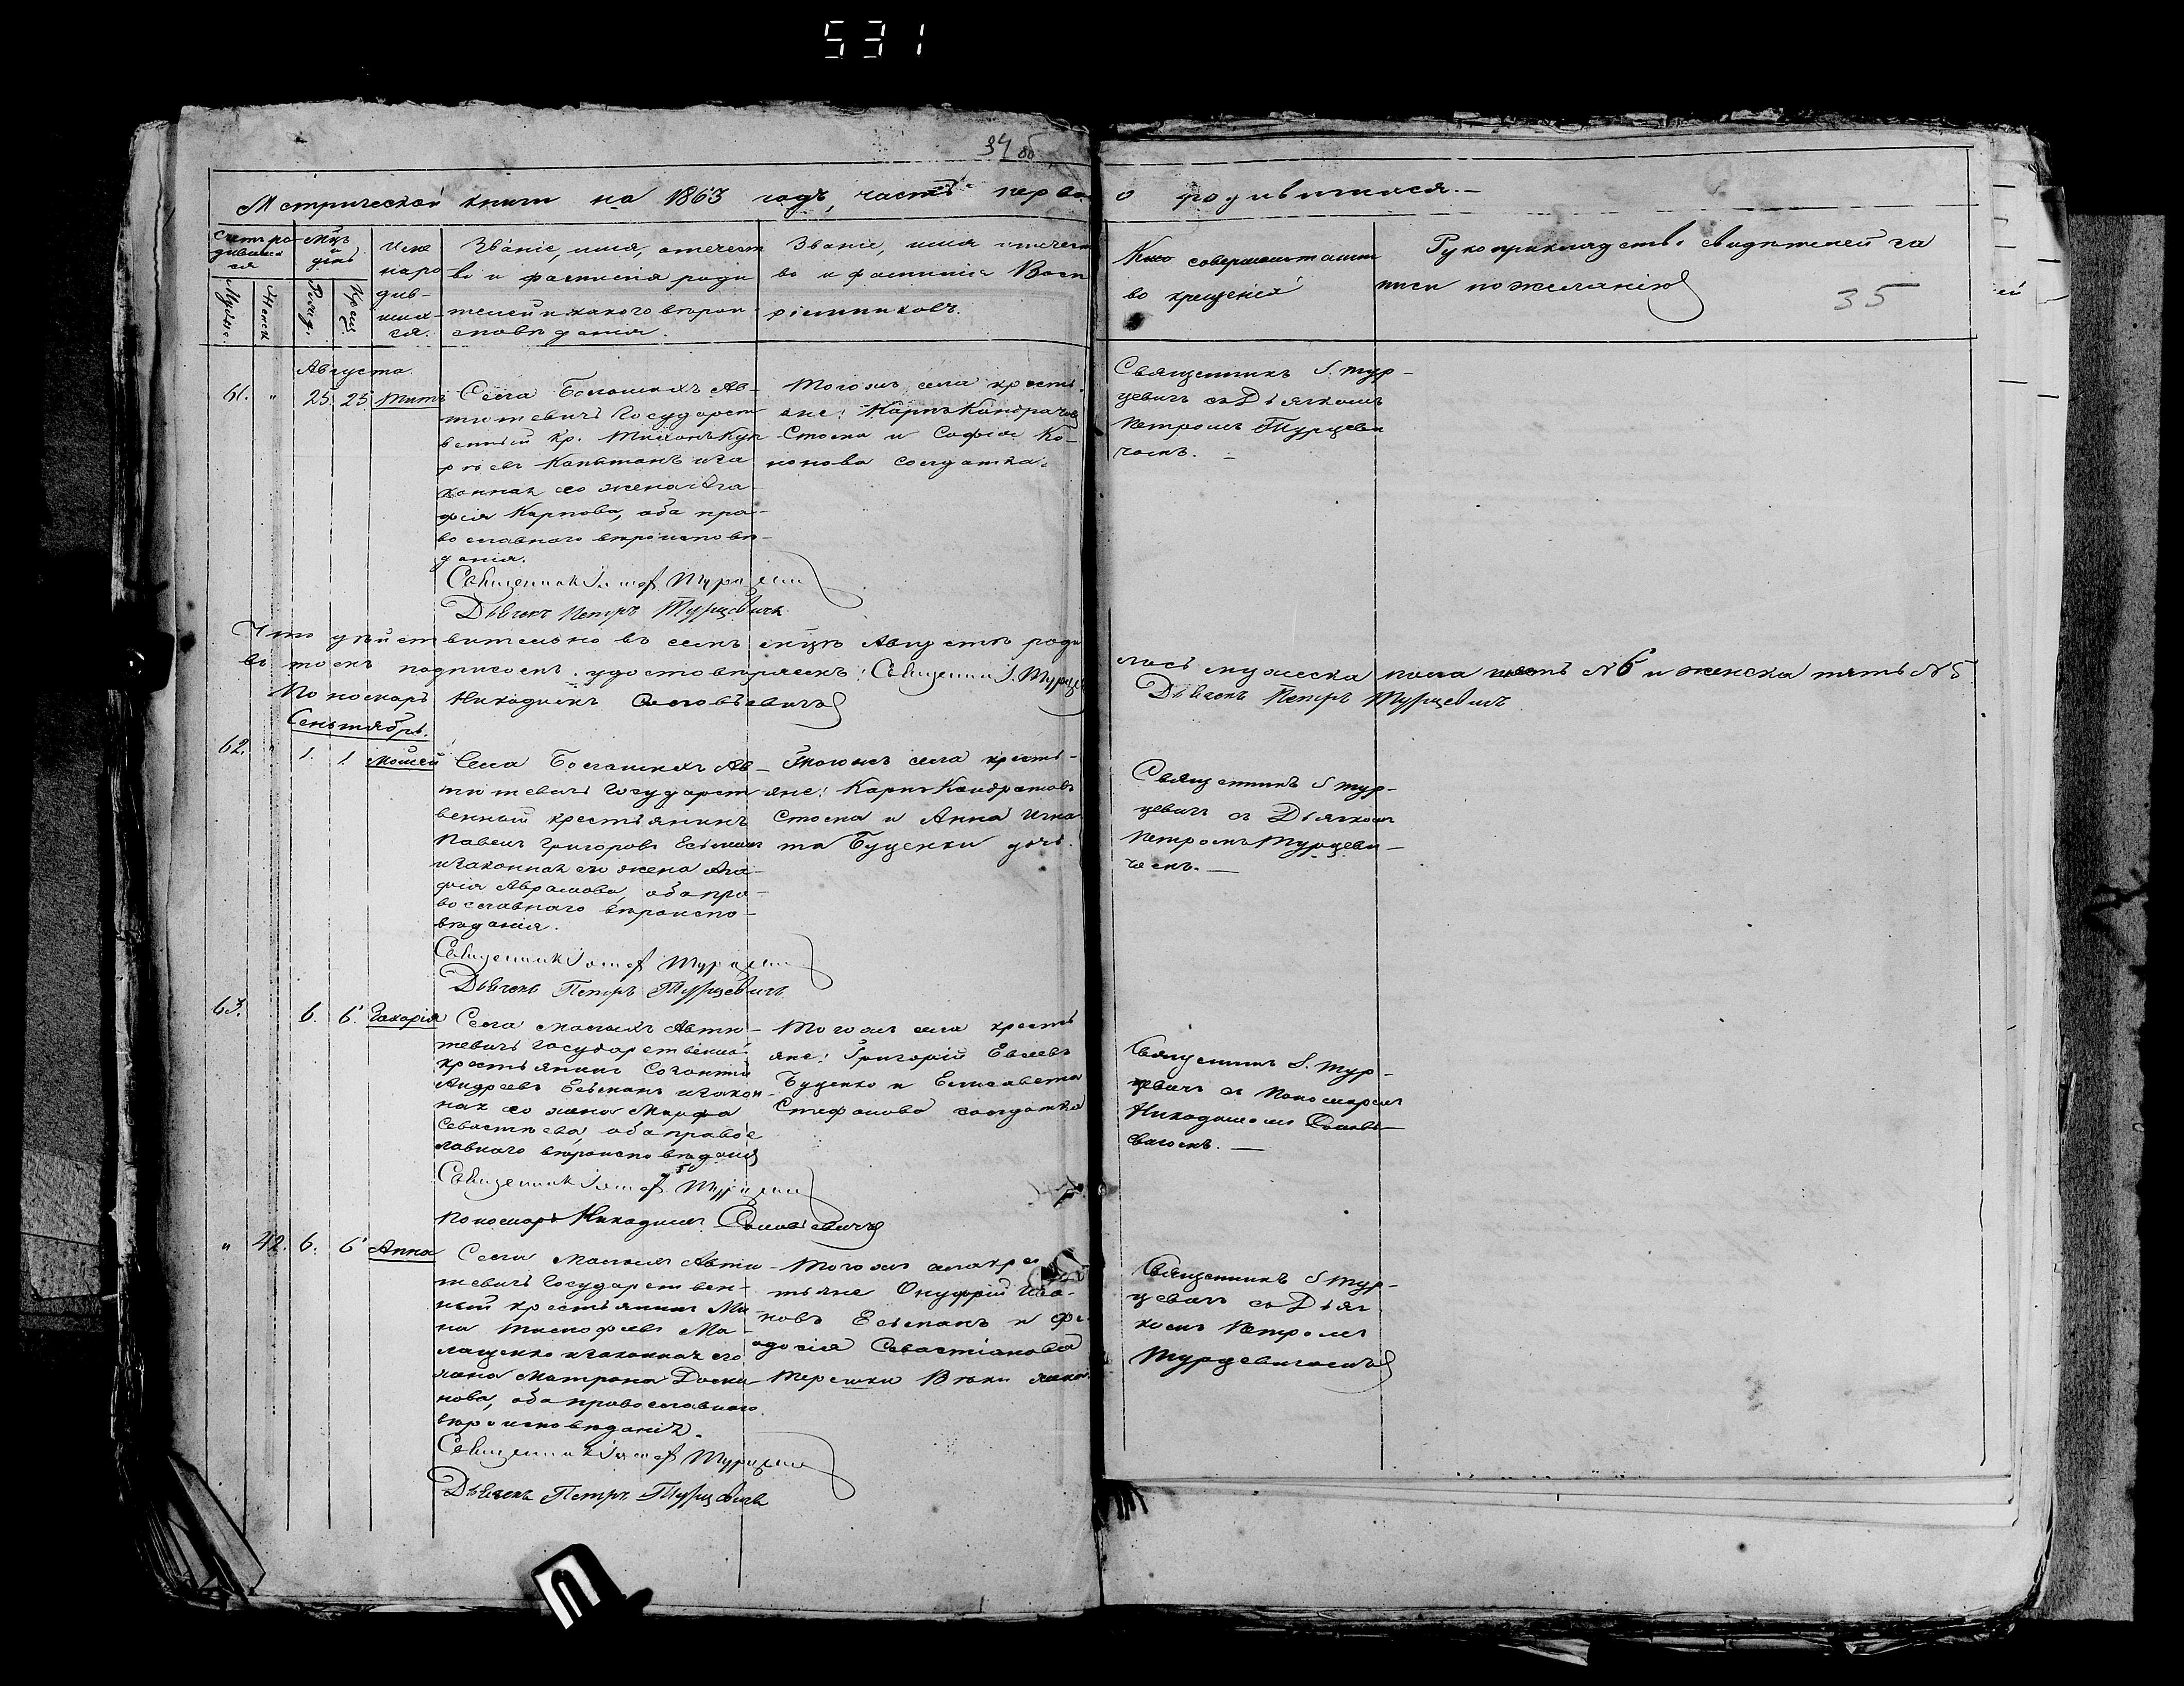 531
34 об
Метрической книги на 1863 годъ, часть перва
о родившихся.-
35
Счетъ ро-
дивших
ся
Мужес.
Женск
мцъ
и
день
Рожд.
Крещ.
Имя
наро
див-
ших-
ся.
Званіе, имя, отечест
во и фамилія роди
телей и какого вѣрои
сповѣданія.
Званіе, имя отечест
во и фамилія Восп
ріемниковъ.
Кто совершалъ таин
во крещенія
Рукоприкладство свидѣтелей за
писи по желанію
Августа.
61. " 25. 25. Титъ
Села Большихъ Ав-
тютевичъ Государст
венный кр. Тихонъ Кур
 Капытанъ и за
конная его жена Ага-
фія Карпова, оба пра-
вославнаго вѣроисповѣ-
данія.
Священникъ Іосиф Турцевич
Дьячекъ Петръ Турцевичъ
Тогожъ села кресть
яне: Карпъ Кондратов
Стома и Софія Ко-
нонова солдатка.
Священникъ І. Тур-
цевичъ съ Дьячкомъ
Петромъ Турцеви
чемъ. -
Что дѣйствительно въ семъ мцѣ Августѣ роди
лось мужеска пола шесть №6 и женска пять №5
въ томъ подписомъ удостовѣряемъ: Священни І. Турце
Дьячекъ Петръ Турцевичъ
Пономаръ Никодимъ Соловьевичъ
Сентябрь.
62. " 1. 1. Моисей
Села Большихъ Ав-
тютевичъ Государст
венный крестьянинъ
Павелъ Григоровъ Есьман
и законная его жена Ага-
фія Авраамова, оба пра-
вославнаго вѣроиспо-
вѣданія.
Священникъ Іосиф Турцевич
Дьячекъ Петръ Турцевичъ
Тогожъ села кресть-
яне: Карпъ Кондратовъ
Стома и Анна Игна
та Буценки дочь.
Священникъ І Тур-
цевичъ съ Дьячкомъ
Петромъ Турцеви-
чемъ. -
63. 6. 6. Захарія
Села Малыхъ Автю-
тевичъ Государственный
крестьянинъ Созонтій
Андреевъ Есьманъ и закон-
ная его жена Марфа
Севастьева оба правос
лавнаго вѣроисповѣданія
Священникъ Іосиф Турцевич
Пономаръ Никодимъ Соловьевичъ
Тогожъ села кресть
яне: Григорій Евсеевъ
Буценко и Елисавета
Стефанова солдатка
Священникъ І. Тур-
цевичъ съ Пономаремъ
Никодимомъ Соловь-
евичемъ. -
" 42. 6. 6 Анна
Села Малыхъ Автю
тевичъ Государствен-
ный крестьянинъ Ми
на Тимофеевъ Ма-
лащенко и законная его
жена Матрона
нова, оба православнаго
вѣроисповѣданія.
Священникъ Іосиф Турцевич
Дьячекъ Петръ Турцевичъ
Тогожъ села крес
тьяне Онуфрій Ива-
новъ Есьманъ и Фе
одосія Севастіанова
Терешки жена.
Священникъ І Тур-
цевичъ съ Дьяч
комъ Петромъ
Турцевичемъ